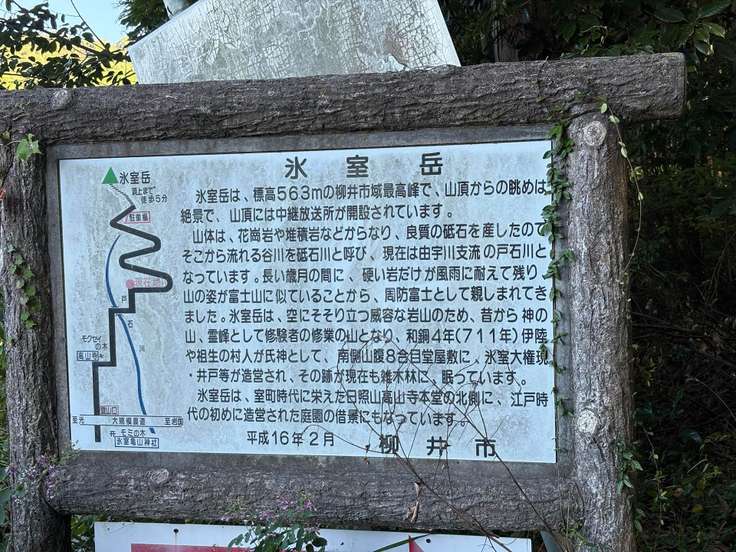 氷室岳
氷室岳は、標高563mの柳井市域最高峰で、山頂からの眺めは
絶景で、山頂には中継放送所が開設されています。
山体は、花崗岩や堆積岩などからなり、良質の砥石を産したので
そこから流れる谷川を砥石川と呼び、現在は由宇川支流の戸石川と
なっています。長い歳月の間に、硬い岩だけが風雨に耐えて残り、
山の姿が富士山に似ていることから、周防富士として親しまれてき
ました。氷室岳は、空にそそり立つ威容な岩山のため、昔から神の
山、霊峰として修験者の修業の山となり、和銅4年(711年)伊陸
や祖生の村人が氏神として、南側山腹8合目堂屋敷に、氷室大権現
・井戸等が造営され、その跡が現在も雑木林に、眠っています。
氷室岳は、室町時代に栄えた日照山高山寺本堂の北側に、江戸時
代の初めに造営された庭園の借景にもなっています。
平成16年2月 柳井市
氷室岳
頂上まで
徒歩5分
駐車場
現在地
戸
石
川
モクセイ
の木
登山口
至
大規模農道
至岩国
モミの木
氷室亀山神社